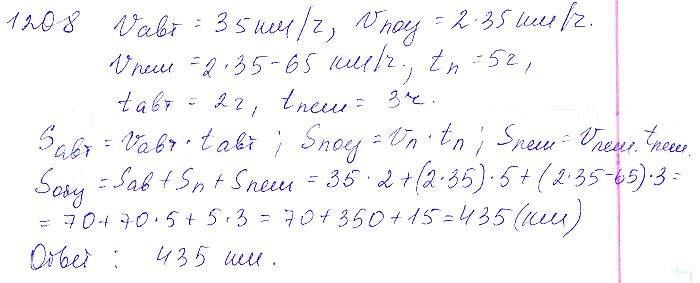 1208 Vавт = 35 км/ч, Vпоу = 2·35 км/ч.
Vпеш = 2·35-65 км/ч, tп = 5ч,
tавт = 2ч, tпеш = 3ч.
Sавт = Vавт · tавт ; Sпоу = Vп · tп ; Sпеш = Vпеш. tпеш.
Sобщ = Sав + Sп + Sпеш = 35 · 2 + (2·35)·5 + (2·35-65)·3 =
= 70 + 70·5 + 5·3 = 70 + 350 + 15 = 435 (км)
Ответ : 435 км.